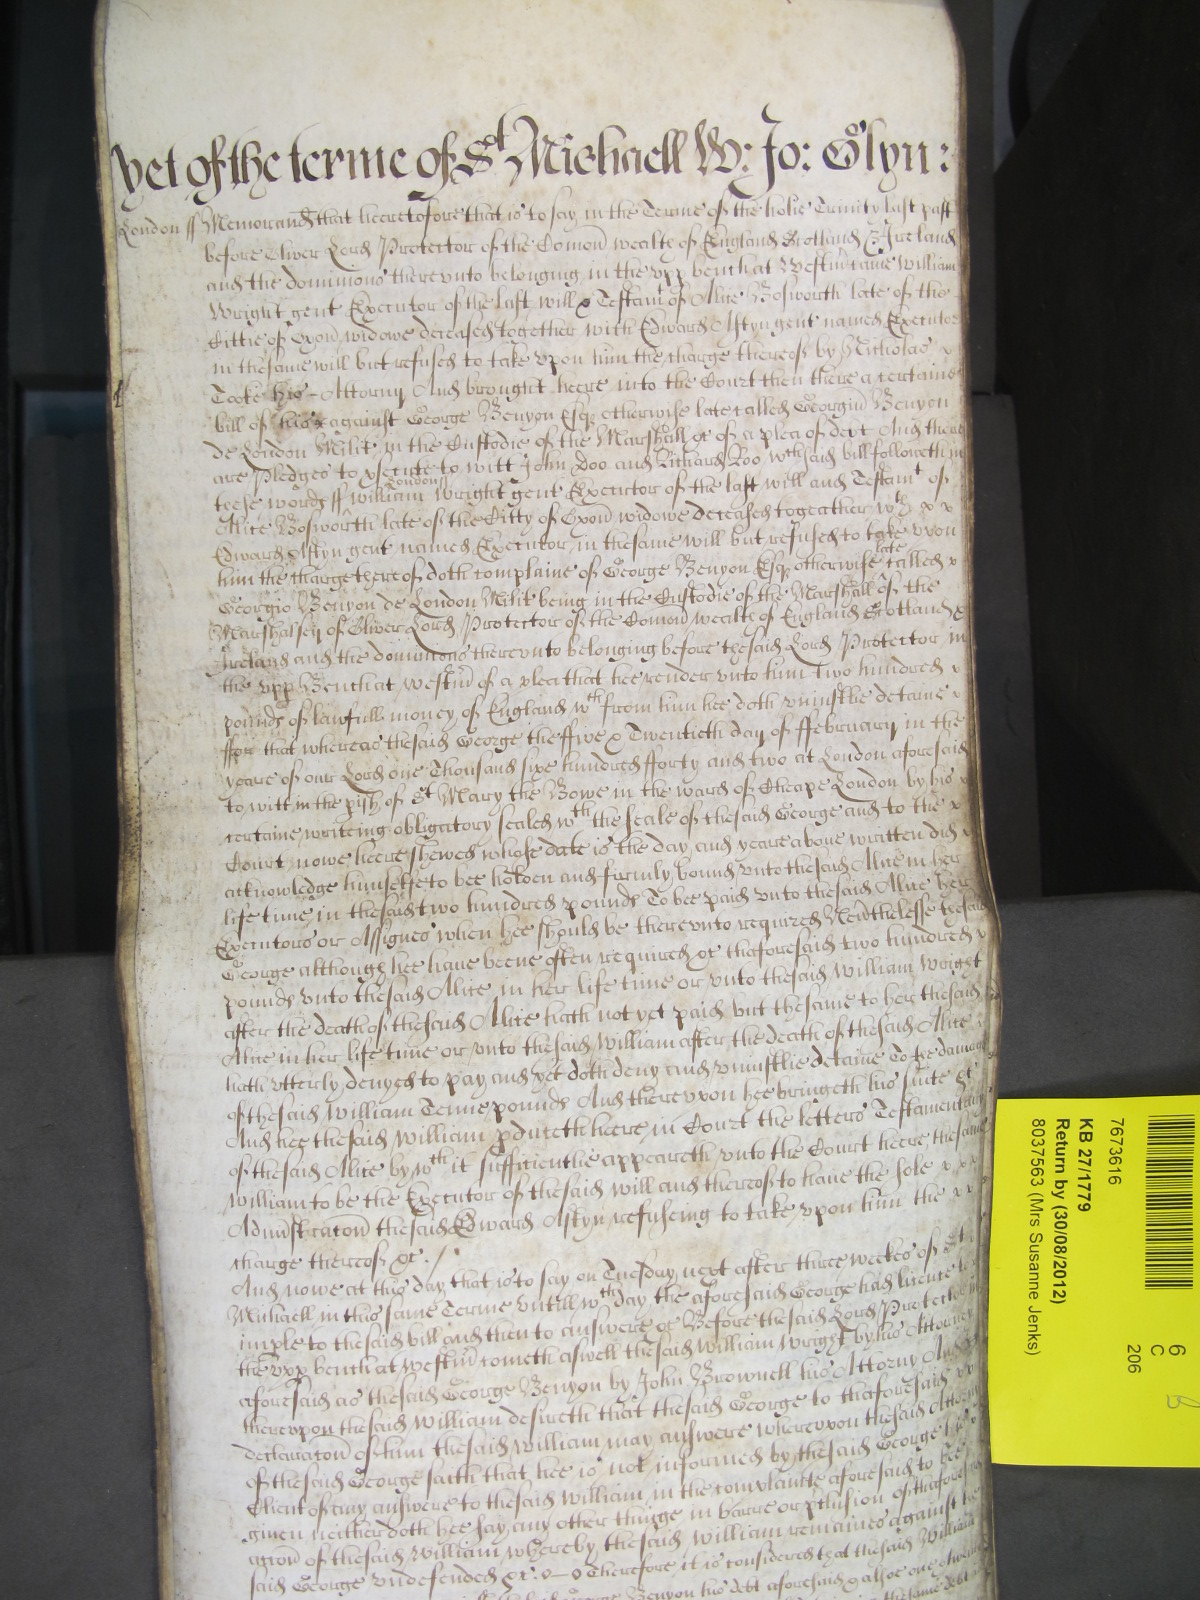 yet of the terme of St Michaell W: Jo: Glyn:
London ss Memorand that heeretofore that is to say in the Terme of the holie Trinity last past
before Oliver Lord Protector of the Comon wealth of England Scotland & Ireland
and the dominions therevnto belonging in the vpp bench at Westm̄ came William
Wright gent Executor of the last will & Testamt of Alice Bosworth late of the
Cittie of Oxon widowe deceased together with Edward Astyn gent named Executor
in the same will but refused to take vpon him the charge thereof by Nicholas x
Tooke his Attorny And brought heere into the Court then there a certaine
bill of his against George Benyon Esqr otherwise late called Georgiu Benyon
de London Milit in the Custodie of the Marshall &c of a plea of debt And there
are Pledges to prsecute to witt John Doo and Richard Roo wch said bill followeth in
teese words ss London ss William Wright gent Executor of the last will and Testamt of
Alice Bosworth late of the Citty of Oxon widowe deceased together wth x x
Edward Astyn gent named Executor in the same will but refused to take vpon
him the charge thereof doth complaine of George Benyon Esqr otherwise late called x
Georgio Benyon de London Milit being in the Custodie of the Marshall of the
Marshalsey of Oliver Lord Protector of the Comon wealth of England Scotland &
Ireland and the dominions therevnto belonging before the said Lord Protector in
the vpp Bench at Westm̄ of a plea that hee render vnto him two hundred x
pounds of lawfull money of England wch from him hee doth vniustlie detaine x
ffor that whereas the said George the ffive & Twentieth day of ffebruary in the
yeare of our Lord one Thousand sixe hundred fforty and two at London aforesaid
to witt in the pish of St Mary the Bowe in the ward of Cheape London by his x
certaine writeing obligatory sealed wth the seale of the said George and to the x
Court nowe heere shewed whose date is the day and yeare above written did x
acknowledge himselfe to bee holden and firmly bound vnto the said Alice in her
life time in the said two hundred pounds To bee paid vnto the said Alice her
Executors or Assignes when hee should be therevnto required Neverthelesse the said
George although hee haue beene often required &c thaforesaid two hundred x
pounds vnto the said Alice in her life time or vnto the said William Wright
after the death of the said Alice hath not yet paid but the same to her the said
Alice in her life time or vnto the said William after the death of the said Alice
hath vtterly denyed to pay and yet doth deny and vniustlie detaine To the damage
of the said William Tenne pounds And therevpon hee bringeth his suite &c
And hee the said William pduceth heere in Court the letters Testamentary
of the said Alice by wch it sufficientlie appeareth vnto the Court heere the said
William to be the Executor of the said will and thereof to haue the sole x x x
Administracon the said Edward Astyn refuseing to take vpon him the x x
charge thereof &c./
And nowe at this day that is to say on Tuesday next after three weekes of St
Michaell in this same Terme vntill wch day the aforesaid George had licence to
imple to the said bill and then to answere &c Before the said Lord Protector in
the vpp bench at Westm̄ cometh aswell the said William Wright by his Attorney
aforesaid as the said George Benyon by John Brownell his Attorny And
therevpon the said William desireth that the said George to thaforesaid
declaracon of him the said William may answere wherevpon the said Attorny
of the said George saith that hee is not informed by the said George his
Client of any answere to the said William in the complainte aforesaid to bee
given neither doth hee say any other thinge in barre or pclusion of thaforesaid
accon of the said William whereby the said William remaines against the
said George vndefended &c Therefore it is considered that the said William
George Benyon his debt aforesaid & alsoe
7673616
KB 27/1779
Return by (30/08/2012)
8037563 (Mrs Susanne Jenks)
6
C
206